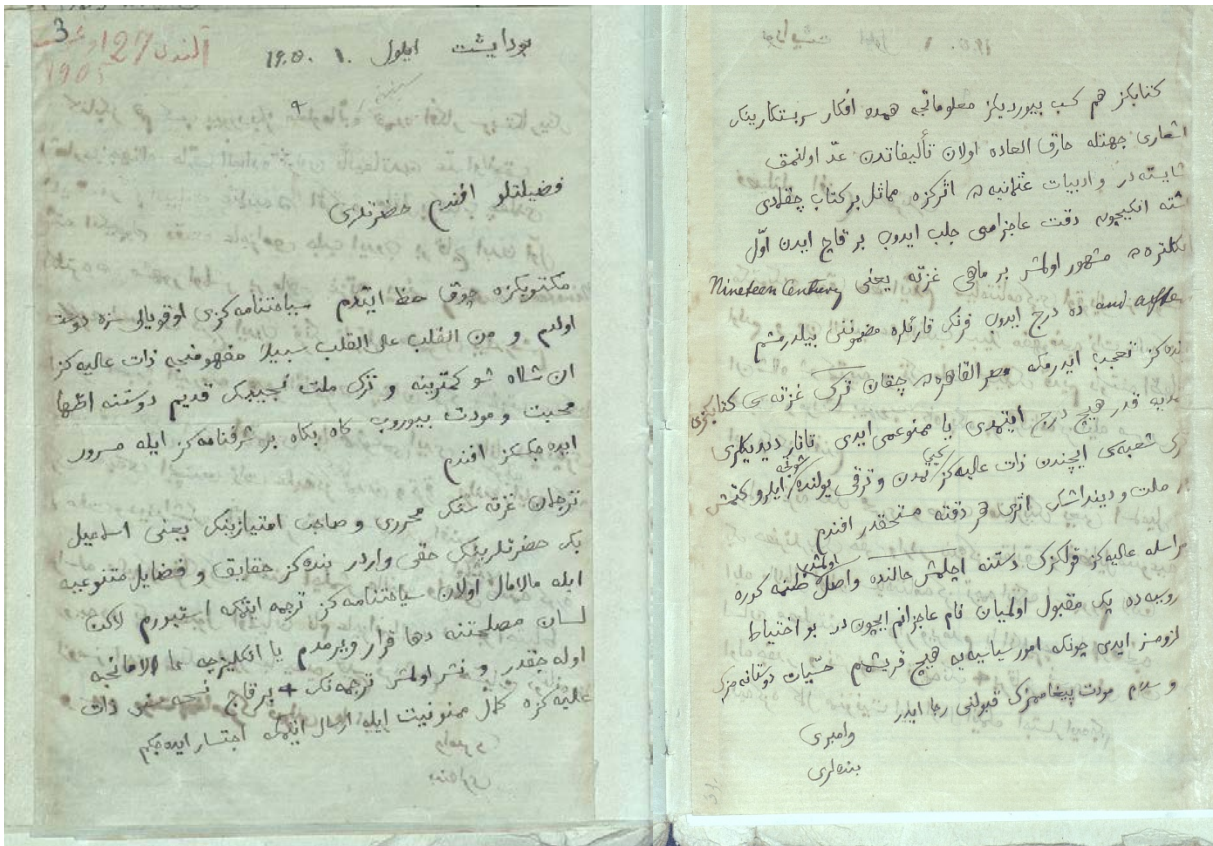 3
آلندى 27
1905
بوداپشت ايلول ١٠ ١٩٠٥
فضيلتلو افندم حضرتلرى
مكتوبكزه چوق حظ ايتدم سياحتنامه كزى اوقويالى سزه دوست
اولدم و من القلب على القلب سبيلا مفهومنجه ذات عاليه كز
ان شالله شو كمترينه و ترك ملت نجيبه نك قديم دوستنه اظهار
محبت و مودت بيوروب كاه بكاه بر شرفنامه كز ايله مسرور
ايده جكسز افندم
ترجمان غزته سنك محررى و صاحب امتيازينك يعنى اسماعيل
بك حضرتلرينك حقى واردر بنده كز حقايق و فضايل متنوعه
ايله مالامال اولان سياحتنامه كزى ترجمه ايتمك استيورم لاكن
لسان مصلحتنه دها قرار ويرمدم يا انكليزجه يا الامانجه
اوله جقدر و نشر اولمش ترجمه نك بر قاچ نسخه سنى ذات
عاليه كزه كمال ممنونيت ايله ارسال ايتمكه اجتسار ايده جكم
كتابكز هم كسب بيورديكز معلوماتى همده افكار سربستكارينك
اشعارى جهتله خارق العاده اولان تأليفاتدن عدّ اولنمق
شايسته در و ادبيات عثمانيه ده اثركزه مماثل بر كتاب چقمدى
شته انكيچون دقت عاجزامى جلب ايدوب بر قاچ ايدن اوّل
نكلتره ده مشهور اولمش بر ماهى غزته يعنى Nineteen Century
and after ده درج ايدوب فرنك قارئلره مضموننى بيلدرمشم
بنده كز تعجب ايدرمكه مصر القاهره ده چقان ترك غزته سى كتابكزى
يه قدر هيچ درج ايتمدى يا ممنوعمى ايدى تاتار ديديكلرى
شعبه سى ايچندن ذات عاليه كز كبى تمدن و ترقى يولنده شونجه ايلرو كتمش
ملت و دينداشك اثرى هر دقته مستحقدر افندم
مراسله عاليه كز فرلكزك دستنه اچلمش حالنده واصل اولمشدر ظنمه كوره
روسيه ده پك مقبول اولميان نام عاجزانم ايچون در بو احتياط
لزومسز ايدى چونكه امور سياسيه يه هيچ قريشمم حسيات دوستانه مزك
و سلام مودت پيغاممزك قبولنى رجا ايدر
وامبرى
بنده لرى